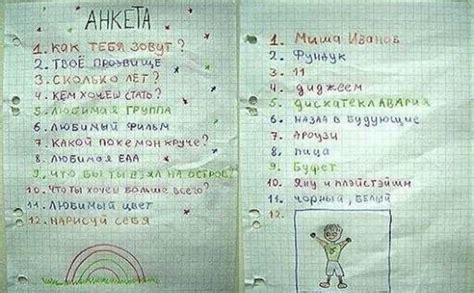 АНКЕТА
1. КАК ТЕБЯ ЗОВУТ?
2. ТВОЁ ПРОЗВИЩЕ
3. СКОЛЬКО ЛЕТ?
4. КЕМ ХОЧЕШ СТАТЬ?
5. ЛЮБИМАЯ ГРУППА
6. ЛЮБИМЫЙ ФИЛЬМ
7. КАКОЙ ПОКЕМОН КРУЧЕ?
8. ЛЮБИМАЯ ЕДА
9. ЧТО БЫ ТЫ ВЗЯЛ НА ОСТРОВ?
10. ЧТО ТЫ ХОЧЕШ БОЛЬШЕ ВСЕГО?
11. ЛЮБИМЫЙ ЦВЕТ
12. НАРИСУЙ СЕБЯ
1. Миша Иванов
2. Фундук
3. 11
4. диджеем
5. дискатеклавария
6. назад в будующие
7. Ароузи
8. пица
9. Буфет
10. Яну и плэйстэйшн
11. чорный, белый
12.